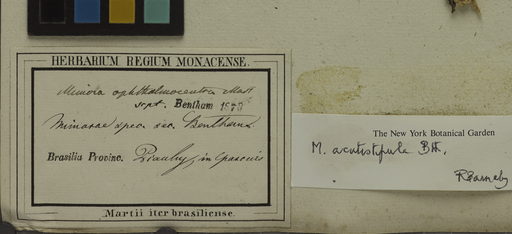 HERBARIUM REGIUM MONACENSE.
Mimosa ophthalmocentra Mart
script. Bentham 1875
Mimosae spec. sec. Bentham.
Brasilia Provinc. Piauhy, in
Martii iter brasiliense.
The New York Botanical Garden
M. acutistipula Bth.
R Barneby